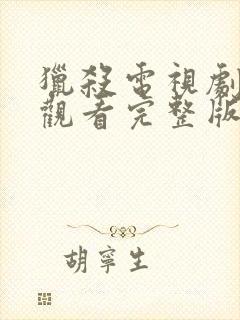 獵殺電視劇
觀看完整版
胡寧生